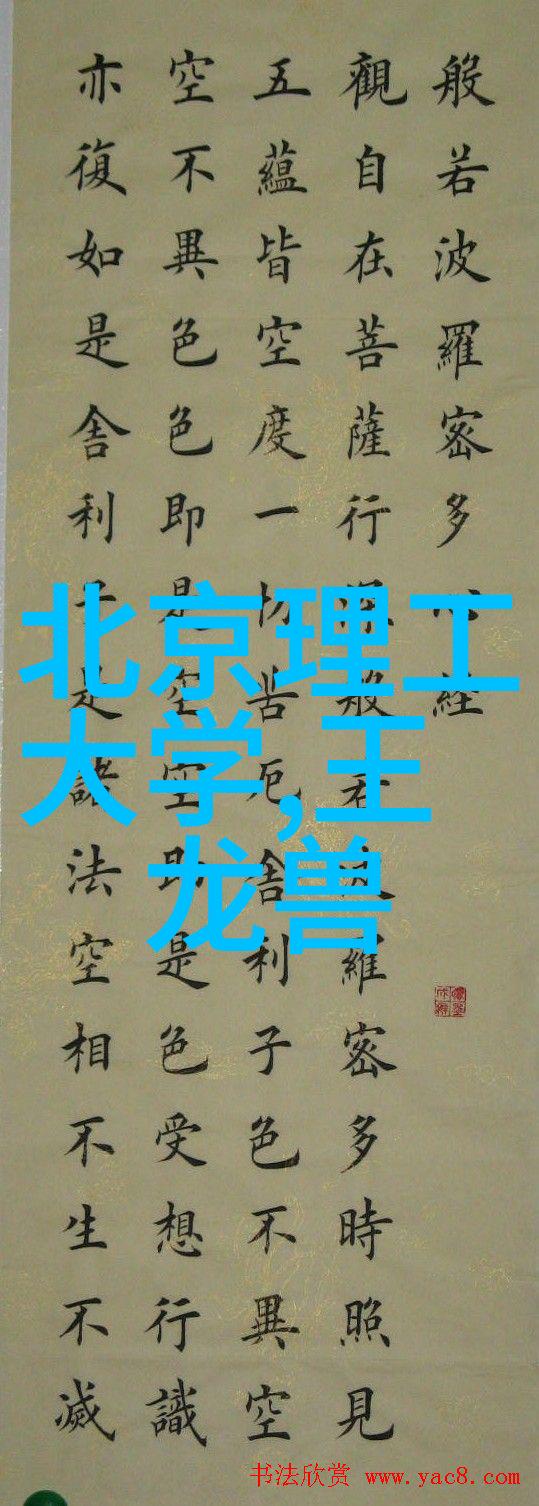 般若波羅密多心經
觀自在菩薩行深般若波羅密多時照見
五蘊皆空度一切苦厄舍利子色不異空
空不異色色即是空空即是色受想行識
亦復如是舍利子是諸法空相不生不滅
北京理工
大学,王
龙兽
书法欣赏 www.yac8.com